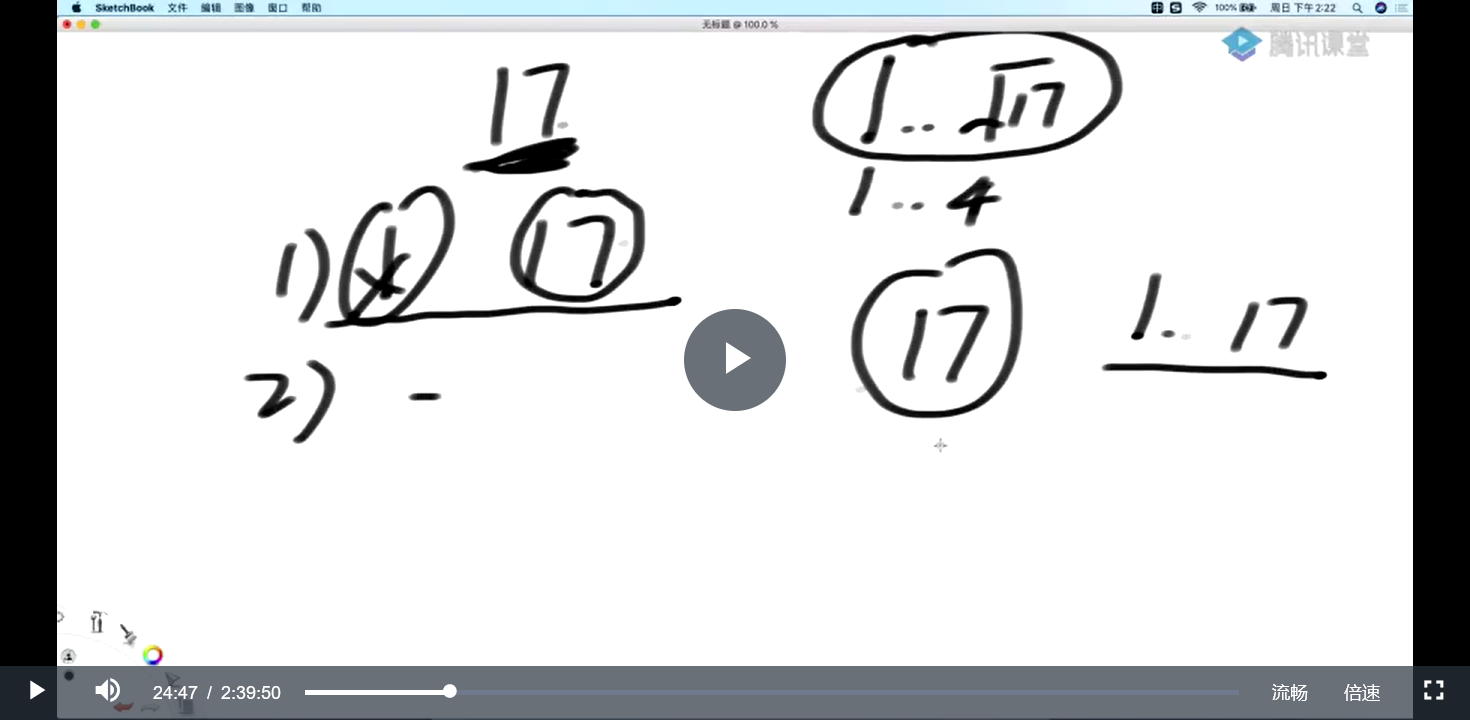 SketchBook 文件 编辑 图像 窗口 帮助 100% 周日 下午2:22
无标题 @ 100.0 %
腾讯课堂
17
1 .. √17
1 .. 4
1) 1 17
17
1 .. 17
2) -
24:47 / 2:39:50 流畅 倍速